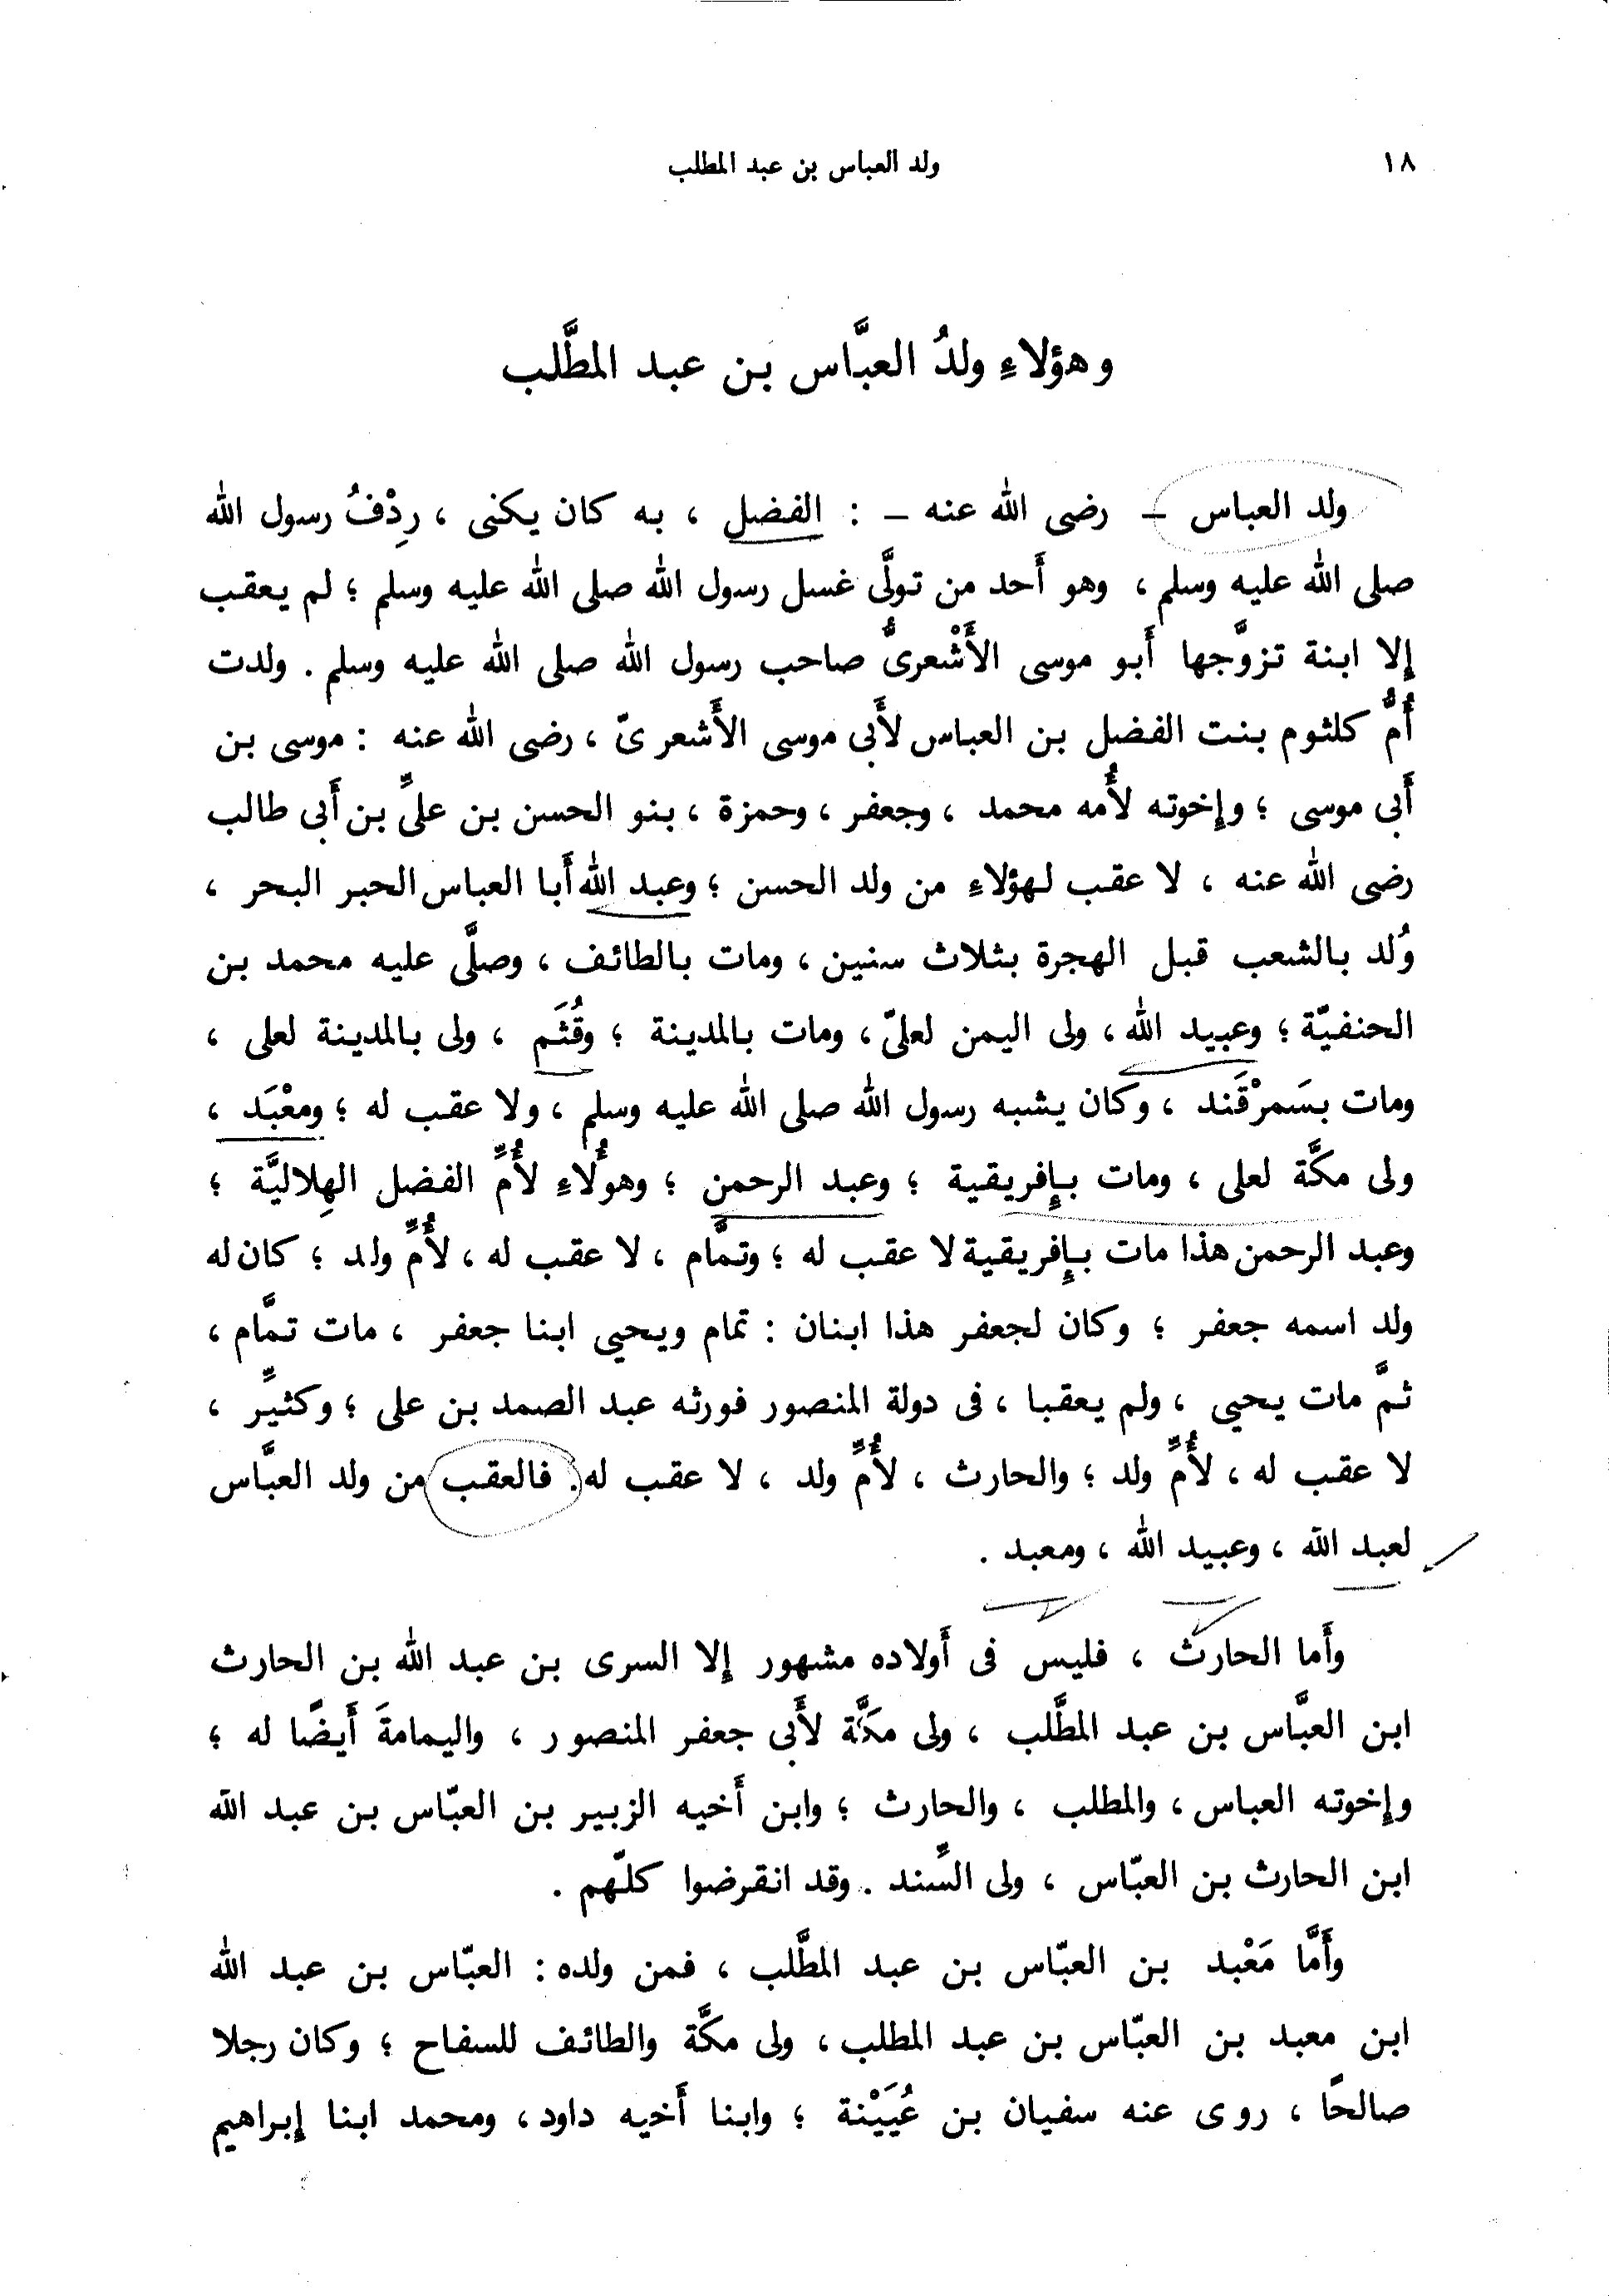 ١٨
ولد العباس بن عبد المطلب
وهؤلاءِ ولدُ العبَّاس بن عبد المطَّلب
ولد العباس – رضى الله عنه – : الفضل ، به كان يكنى ، ردِْفُ رسول الله
صلى الله عليه وسلم ، وهو أَحد من تولَّى غسل رسول الله صلى الله عليه وسلم ؛ لم يعقب
إلا ابنة تزوَّجها أَبو موسى الأَشْعرىُّ صاحب رسول الله صلى الله عليه وسلم . ولدت
أُمُّ كلثوم بنت الفضل بن العباس لأَبى موسى الأَشعرىّ ، رضى الله عنه : موسى بن
أَبى موسى ؛ وإخوته لأُمه محمد ، وجعفر ، وحمزة ، بنو الحسن بن علىِّ بن أَبى طالب
رضى الله عنه ، لا عقب لهؤلاءِ من ولد الحسن ؛ وعبد الله أَبا العباس الحبر البحر ،
وُلد بالشعب قبل الهجرة بثلاث سنين ، ومات بالطائف ، وصلَّى عليه محمد بن
الحنفيّة ؛ وعبيد الله ، ولى اليمن لعلىّ ، ومات بالمدينة ؛ وقُثَم ، ولى بالمدينة لعلى ،
ومات بسَمرْقَند ، وكان يشبه رسول الله صلى الله عليه وسلم ، ولا عقب له ؛ ومعْبَد ،
ولى مكَّة لعلى ، ومات بإِفريقية ؛ وعبد الرحمن ؛ وهوُلاءِ لأُمِّ الفضل الهِلاليَّة ؛
وعبد الرحمن هذا مات بإِفريقية لا عقب له ؛ وتمَّام ، لا عقب له ، لأُمِّ ولد ؛ كان له
ولد اسمه جعفر ؛ وكان لجعفر هذا ابنان : تمام ويحيى ابنا جعفر ، مات تمَّام ،
ثمَّ مات يحيى ، ولم يعقبا ، فى دولة المنصور فورثه عبد الصمد بن على ؛ وكثيِّر ،
لا عقب له ، لأُمِّ ولد ؛ والحارث ، لأُمِّ ولد ، لا عقب له . فالعقب من ولد العبَّاس
لعبد الله ، وعبيد الله ، ومعبد .
وأَما الحارث ، فليس فى أَولاده مشهور إلا السرى بن عبد الله بن الحارث
ابن العبَّاس بن عبد المطَّلب ، ولى مكَّة لأَبى جعفر المنصور ، واليمامةَ أَيضًا له ؛
وإخوته العباس ، والمطلب ، والحارث ؛ وابن أَخيه الزبير بن العبّاس بن عبد الله
ابن الحارث بن العبّاس ، ولى السِّند . وقد انقرضوا كلّهم .
وأَمَّا مَعْبد بن العبّاس بن عبد المطَّلب ، فمن ولده : العبّاس بن عبد الله
ابن معبد بن العبّاس بن عبد المطلب ، ولى مكَّة والطائف للسفاح ؛ وكان رجلا
صالحًا ، روى عنه سفيان بن عُيَيْنة ؛ وابنا أَخيه داود ، ومحمد ابنا إبراهيم